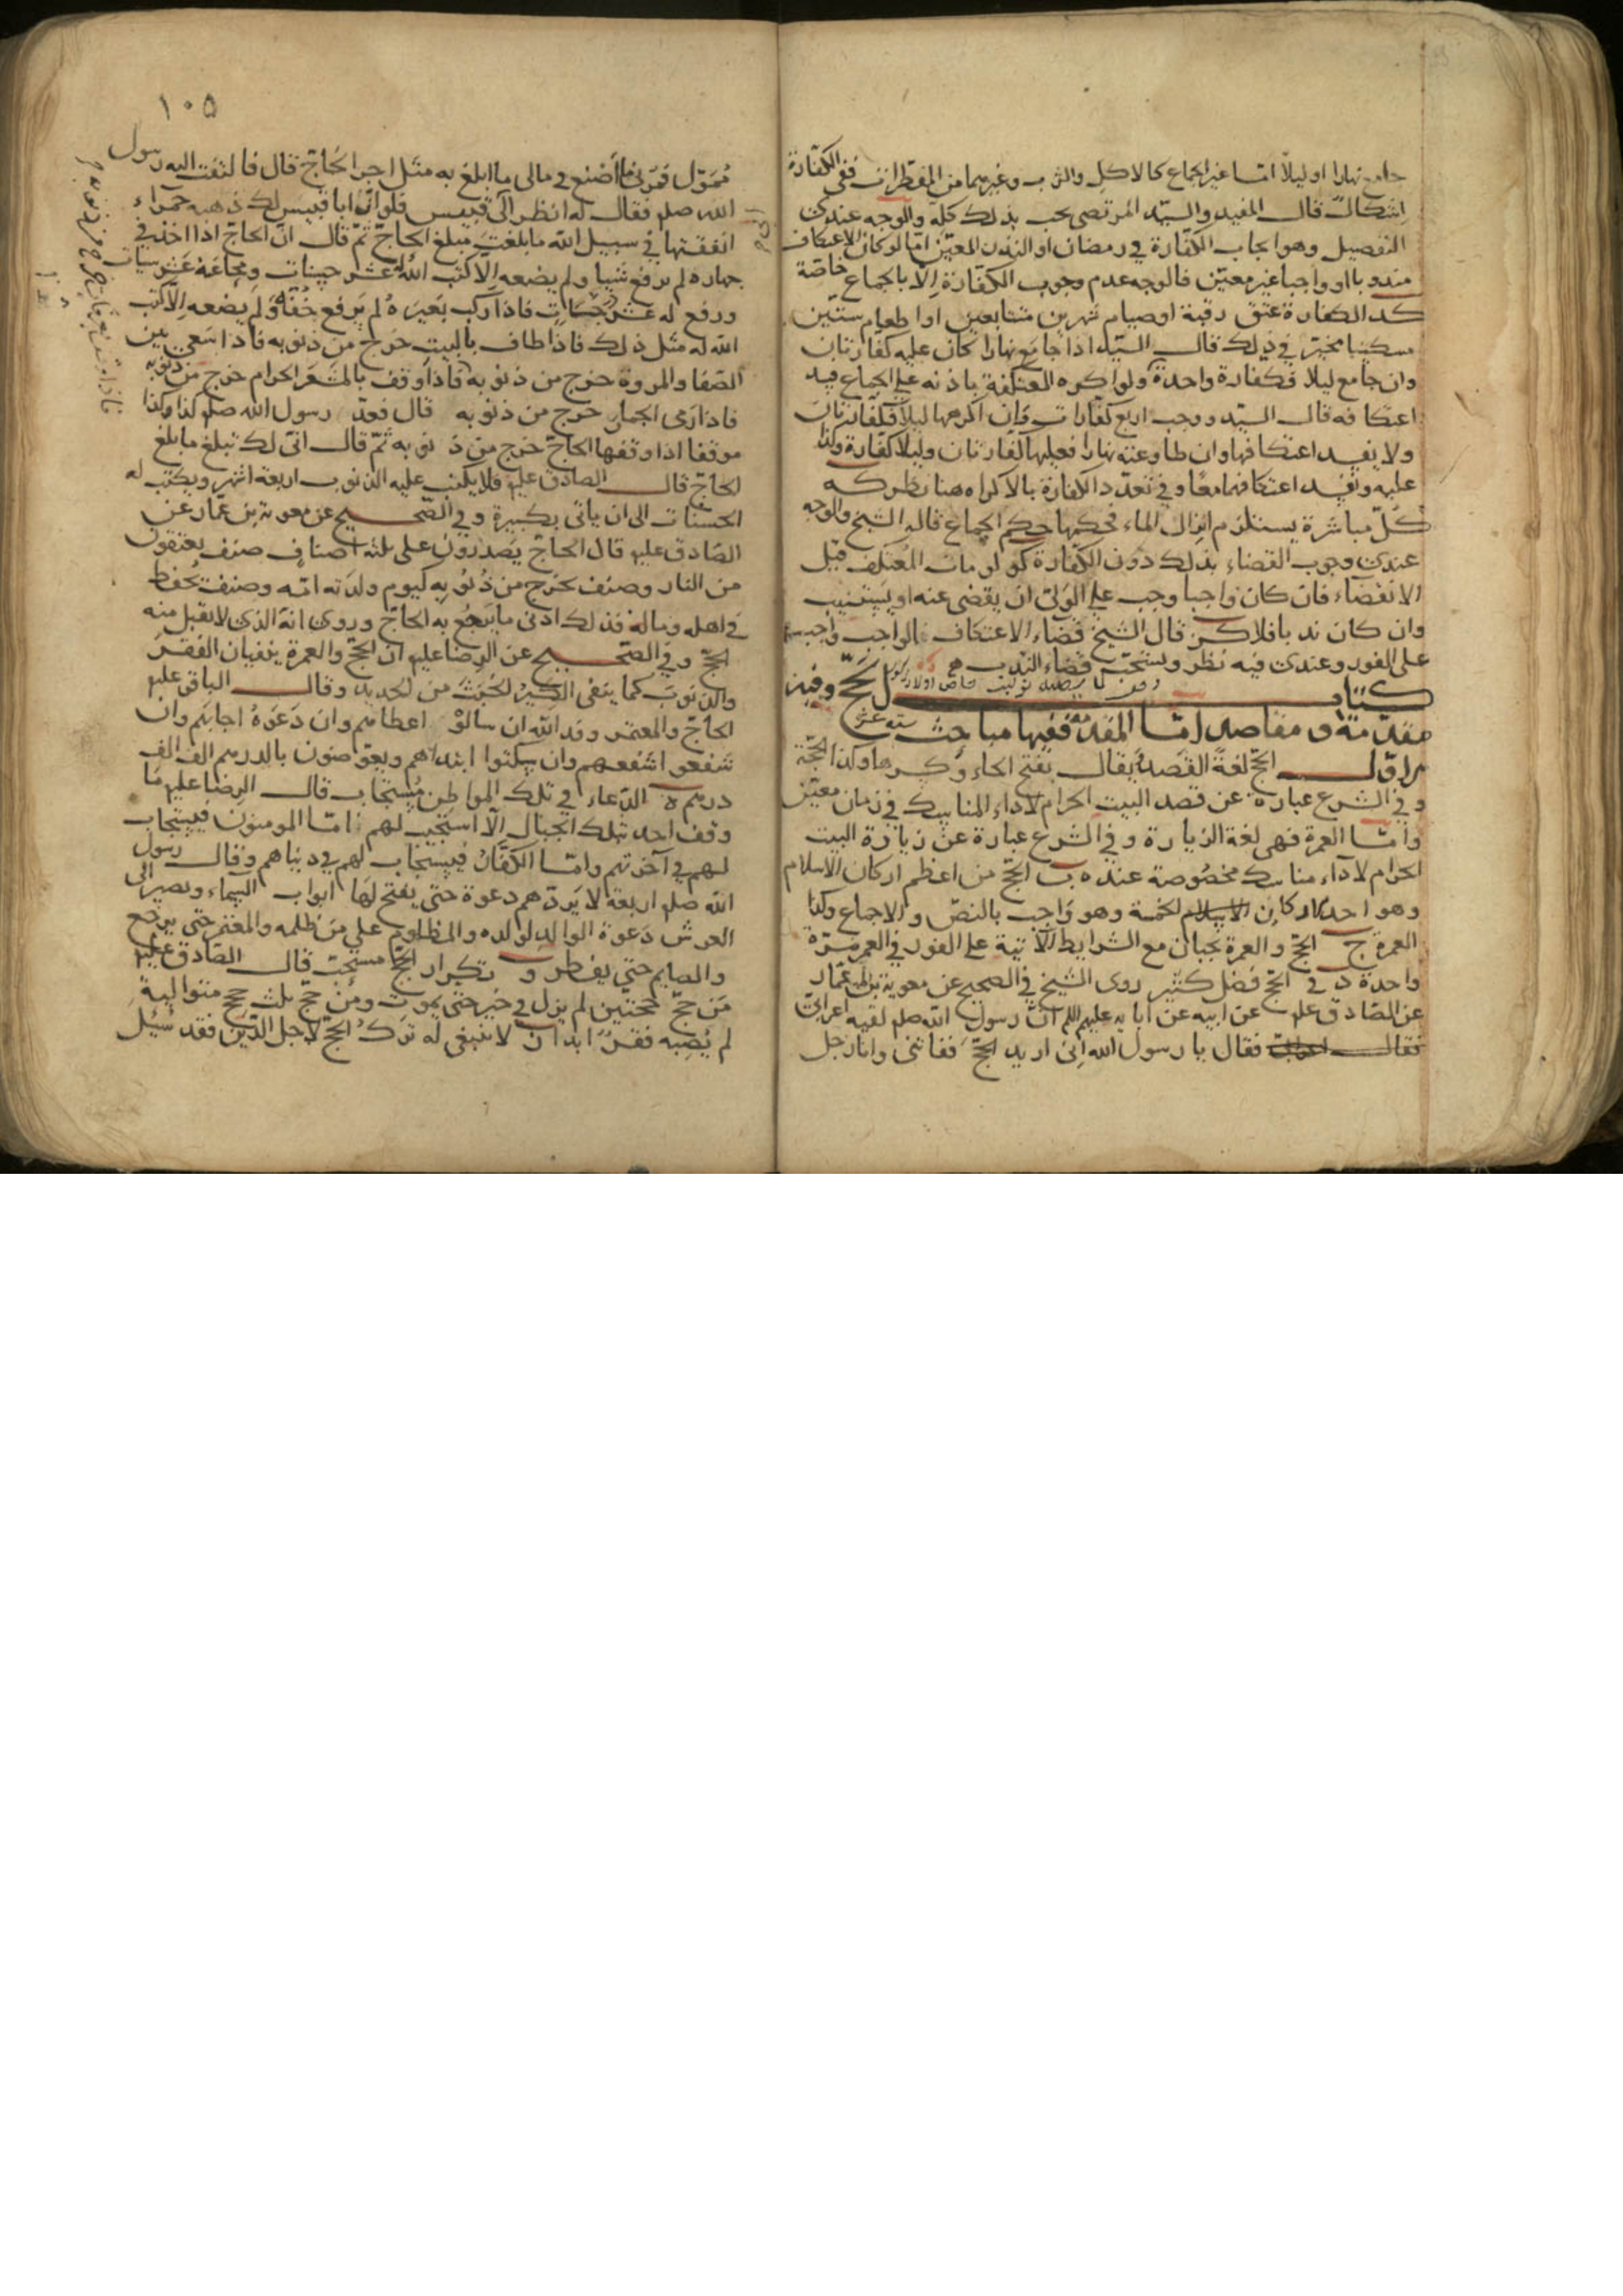 جامع نهارا او ليلا امّا غير الجماع كالاكل والشرب وغيرهما من المفطرات ففى الكفارة
اشكال قال المفيد والسيّد المرتضى يجب بذلك كله والوجه عندى
التفصيل وهو ايجاب الكفّارة فى رمضان او النذر المعيّن امّا لو كان الاعتكاف
مندوبا او واجبا غير معيّن فالوجه عدم وجوب الكفّارة الّا بالجماع خاصّة
كد الكفارة عتق رقبة او صيام شهرين متتابعين او اطعام ستّين
مسكينا مخيّر فى ذلك قال السيّد اذا جامع نهارا كان عليه كفارتان
وان جامع ليلا فكفارة واحدة ولو اكره المعتكفة باذنه على الجماع فيه
اعتكافه قال السيّد ووجب اربع كفّارات وان اكرهها ليلا فكفّارتان
ولا يفسد اعتكافها وان طاوعته نهارا فعليها كفّارتان وليلا كفّارة وكذا
عليه ويفسد اعتكافهما معًا وفى تعدّد الكفارة بالاكراه هنا نظر كه
كُلّ مباشرة يستلزم انزال الماء فحكمها حكم الجماع قاله الشيخ والوجه
عندى وجوب القضاء بذلك دون الكفّارة كو لو مات المُعتكف قبل
الانقضاء فان كان واجبا وجب على الولىّ ان يقضى عنه او يستنيب
وان كان ندبا فلا كز قال الشيخ قضاء الاعتكاف الواجب واجب
على الفور وعندى فيه نظر ويستحبّ قضاء الندب
كتاب الحَجّ وفيه
مقدّمة و مقاصد امّا المقدّمة ففيها مباحث ستة عشر
الاوّل الحجّ لغةً القصد يقال بفتح الحاء وكسرها وكذا الحجّة
وفى الشرع عبارة عن قصد البيت الحرام لاداء المناسك فى زمان معيّن
وامّا العمرة فهى لغة الزيارة وفى الشرع عبارة عن زيارة البيت
الحرام لاداء مناسك مخصُوصة عنده ب الحجّ من اعظم اركان الاسلام
وهو احد اركان الاسلام الخمسة وهو وَاجب بالنصّ والاجماع وكذا
العمرة ج الحجّ والعمرة يجبان مع الشرايط الآتية على الفور فى العمر مرّة
واحدة د فى الحجّ فضل كثير روى الشيخ فى الصحيح عن معوية بن عمّار
عن الصّادق عليه عن ابيه عن آبايه عليهم ان رسول الله صلم لقيه اعرابىّ
فقال فقال يا رسول الله انى اريد الحجّ ففاتنى وانا رجل
١٠٥
مُمَوّل فمُرنى ما اَصْنع فى مالى ما ابلغ به مثل اجر الحَاجّ قال فالتفت اليه رسول
الله صلم فقال له انظر الى ابى قبيس فلو انّ ابا قبيس لك ذهبه حمراء
انفقتها فى سبيل الله ما بلغتَ مبلغ الحاجّ ثمّ قال انّ الحاجّ اذا اخذ فى
جهازه لم يرفع شيئا ولم يضعه الّا كتب الله له عشر حسنات ومحا عَنهُ عشر سيئات
ورفع له عشر درجات فاذا ركب بَعيَره لم يَرفع خُفًّا وَلم يضعه الّا كتب
الله له مثل ذلك فاذا طاف بالبيت خرج من ذنوبه فاذا سَعى بين
الصّفا والمروة خرج من ذنوبه فاذا وقف بالمشعَر الحرام خرج من ذنوبه
فاذا رَمى الجمار خرج من ذنوبه قال فعدّ رسول الله صلم كذا وكذا
موقفا اذا وقفها الحاجّ خرج من ذنوبه ثمّ قال انّى لك تبلغ ما بلغ
الحاجّ قال الصّادق عليه فلا يكتب عليه الذنوب اربعة اشهر ويكتب له
الحسنات الى ان ياتى بكبيرة وفى الصّحيح عن معوية بن عمّار عن
الصّادق عليه قال الحاجّ يَصدرون على ثلثة اصناف صنف يعتقون
من النار وصنف يخرج من ذُنوُبِهِ كيوم ولدَته امّه وصنف يُحفظ
فى اهله وماله فذلك ادنى ما يَرجُع به الحاجّ وروى انه الذى لا يقبل منه
الحجّ وفى الصّحيح عن الرضا عليه ان الحجّ والعمرة ينفيان الفقرَ
والذنوبَ كما ينفى الكير الخَبثَ من الحديد وقال الباقر عليه
الحاجّ والمعتمر وفد الله ان سالوْه اعطاهم وان دَعَوهُ اجابَهم وان
شفعوا شفعهم وان سكتوا ابتدأهم ويعوّضون بالدرهم الف الف
درهم ه الدّعاء فى تلك المواطن مُستجاب قال الرضا عليه مَا
وقف احد بتلك الجبال الّا استجيب لهم امّا المومنون فيستجاب
لهم فى آخرتهم وامّا الكفّارُ فيستجاب لهم فى دنياهم وقال رسول
الله صلم اربعة لا يَردّ لهم دعوة حتى يفتح لهَا ابواب السّماء ويصير الى
العرش دَعوة الوالد لولده والمظلوم على مَن ظلمه والمعتمر حتى يرجع
والصايم حتى يفطر و تكرار الحجّ مستحبّ قال الصّادق عليه
مَن حجّ حجّتين لم يزل فى خير حتى يموت ومن حجّ ثلث حجج متوالية
لم يُصِبه فقرٌ ابدا ز لا ينبغى له تركُ الحجّ لاجل الدَّين فقد سُئِلَ